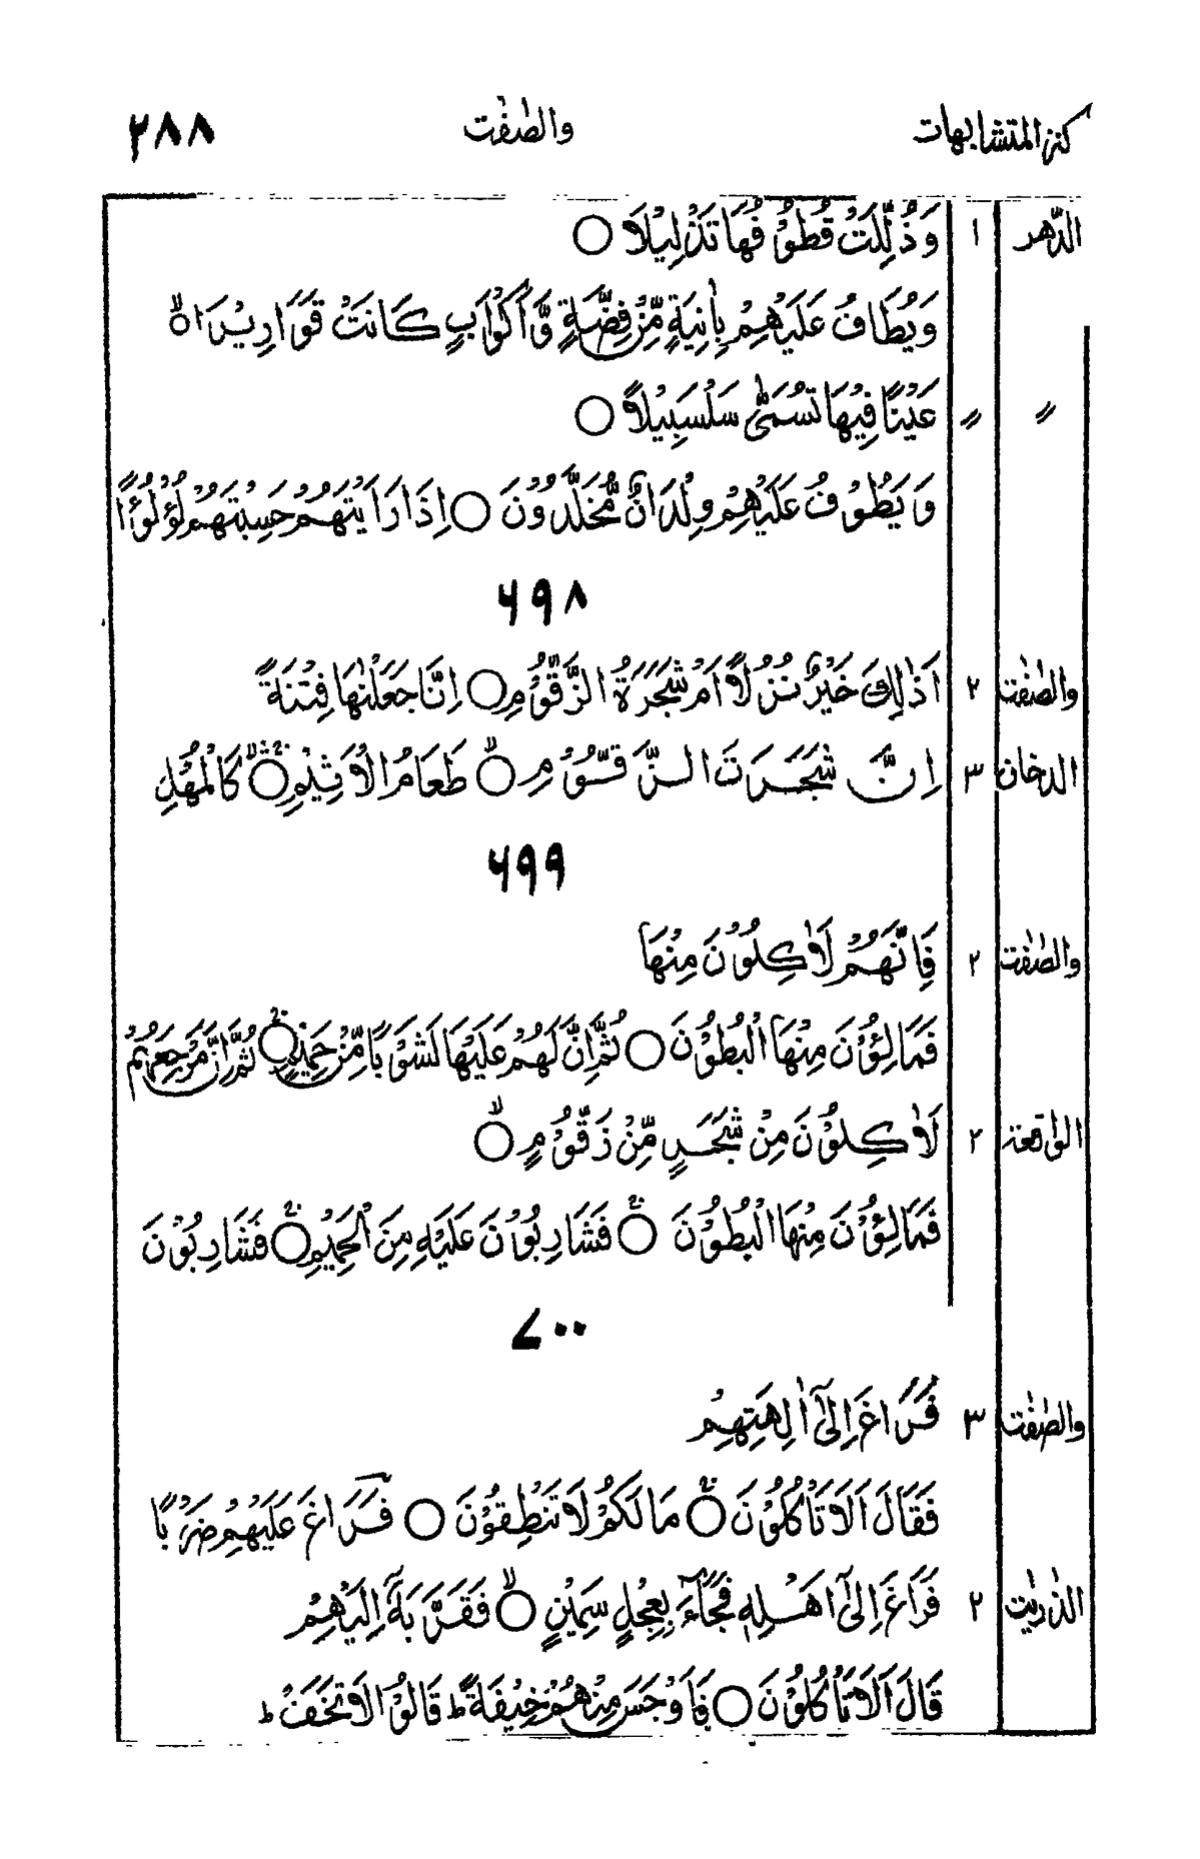 كنز المتشابهات والصّٰفّٰت ٢٨٨
الدّهر ١ وَذُلِّلَتْ قُطُوْفُهَا تَذْلِيْلًا ○
وَيُطَافُ عَلَيْهِمْ بِاٰنِيَةٍ مِّنْ فِضَّةٍ وَّاَكْوَابٍ كَانَتْ قَوَارِيْرَا۠ ۙ○
〃 〃 عَيْنًا فِيْهَا تُسَمّٰى سَلْسَبِيْلًا ○
وَيَطُوْفُ عَلَيْهِمْ وِلْدَانٌ مُّخَلَّدُوْنَ ○ اِذَا رَاَيْتَهُمْ حَسِبْتَهُمْ لُؤْلُؤًا
٦٩٨
والصّٰفّٰت ٢ اَذٰلِكَ خَيْرٌ نُّزُلًا اَمْ شَجَرَةُ الزَّقُّوْمِ ○ اِنَّا جَعَلْنٰهَا فِتْنَةً
الدخان ٣ اِنَّ شَجَرَتَ الزَّقُّوْمِ ۙ○ طَعَامُ الْاَثِيْمِ ۛۚ○ كَالْمُهْلِ
٦٩٩
والصّٰفّٰت ٢ فَاِنَّهُمْ لَاٰكِلُوْنَ مِنْهَا
فَمَالِـُٔوْنَ مِنْهَا الْبُطُوْنَ ○ ثُمَّ اِنَّ لَهُمْ عَلَيْهَا لَشَوْبًا مِّنْ حَمِيْمٍ ۚ○ ثُمَّ اِنَّ مَرْجِعَهُمْ
الواقعة ٢ لَاٰكِلُوْنَ مِنْ شَجَرٍ مِّنْ زَقُّوْمٍ ۙ○
فَمَالِـُٔوْنَ مِنْهَا الْبُطُوْنَ ۚ○ فَشَارِبُوْنَ عَلَيْهِ مِنَ الْحَمِيْمِ ۚ○ فَشَارِبُوْنَ
٧٠٠
والصّٰفّٰت ٣ فَرَاغَ اِلٰٓى اٰلِهَتِهِمْ
فَقَالَ اَلَا تَاْكُلُوْنَ ۚ○ مَا لَكُمْ لَا تَنْطِقُوْنَ ○ فَرَاغَ عَلَيْهِمْ ضَرْبًا
الذّٰريٰت ٢ فَرَاغَ اِلٰٓى اَهْلِهٖ فَجَآءَ بِعِجْلٍ سَمِيْنٍ ۙ○ فَقَرَّبَهٗٓ اِلَيْهِمْ
قَالَ اَلَا تَاْكُلُوْنَ ○ فَاَوْجَسَ مِنْهُمْ خِيْفَةً ؕ قَالُوْا لَا تَخَفْ ؕ